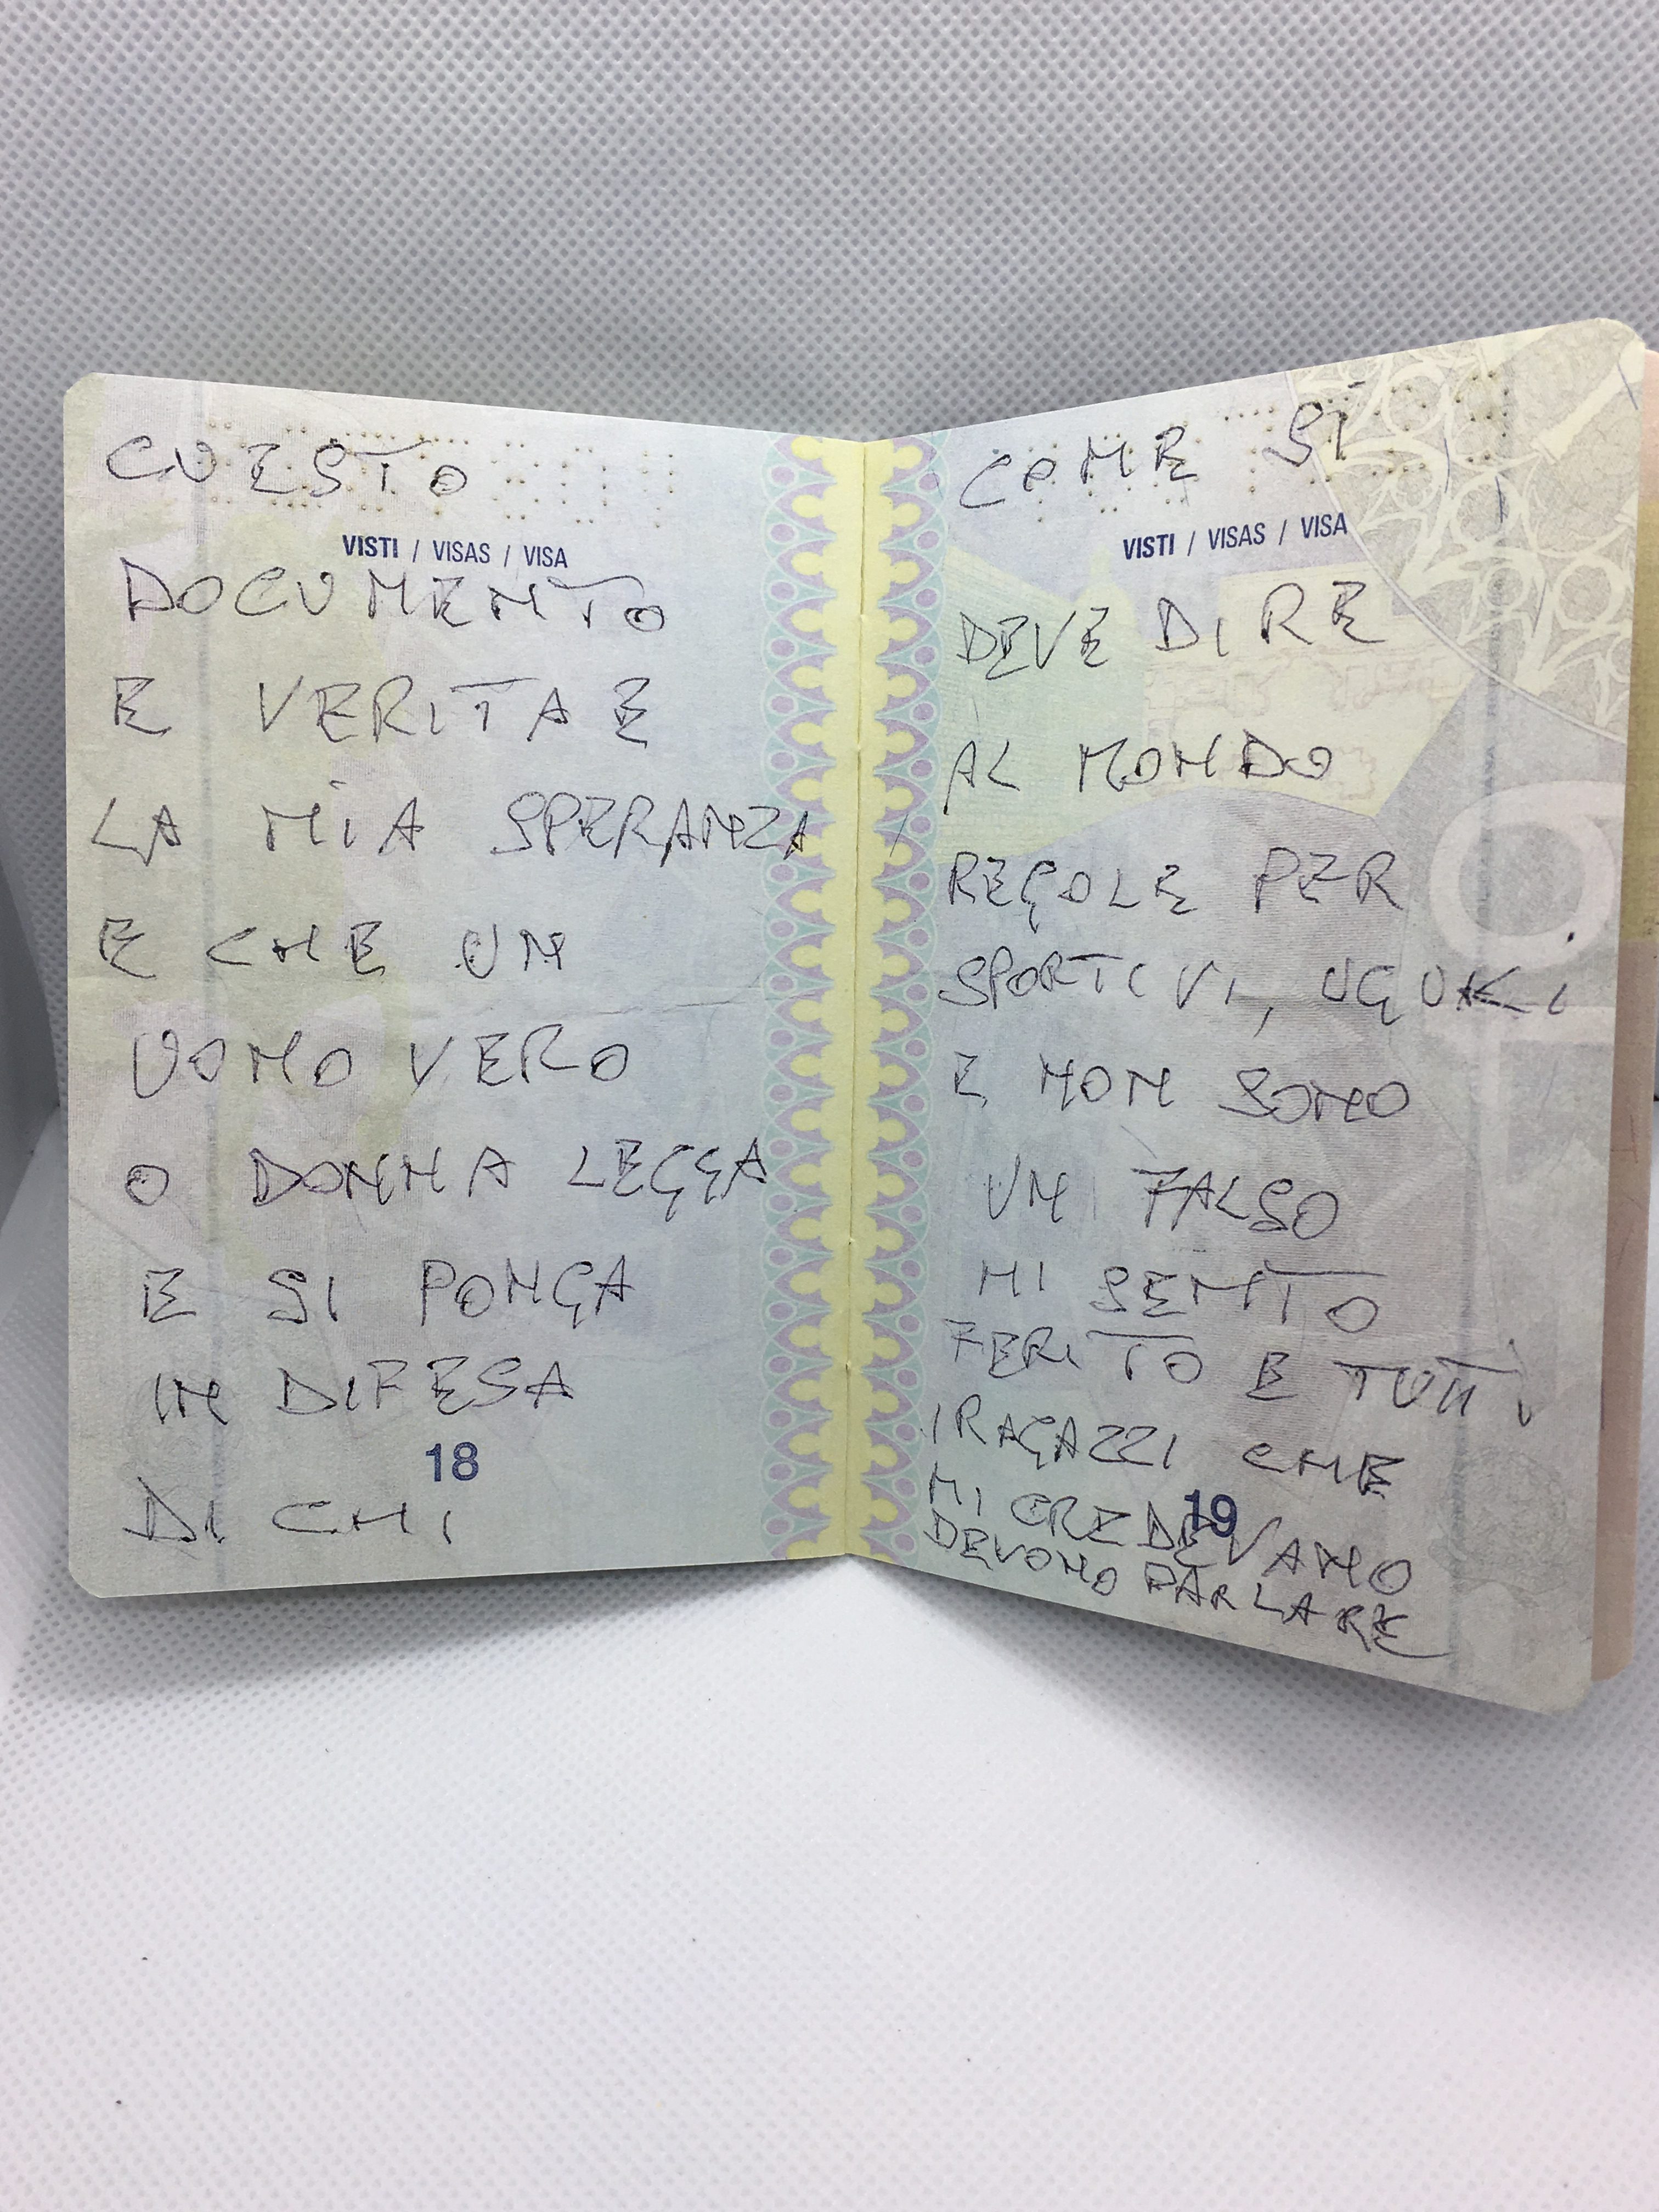 CUESTO
VISTI / VISAS / VISA
DOCUMENTO
E VERITA E
LA MIA SPERANZA
E CHE UN
UOMO VERO
O DONNA LEGGA
E SI PONGA
IN DIFESA
18
DI CHI
COME SI
VISTI / VISAS / VISA
DEVE DIRE
AL MONDO
REGOLE PER
SPORTIVI,
E NON SONO
UN FALSO
MI SENTO
FERITO E TUTTI
I RAGAZZI CHE
MI CREDEVANO
19
DEVONO PARLARE